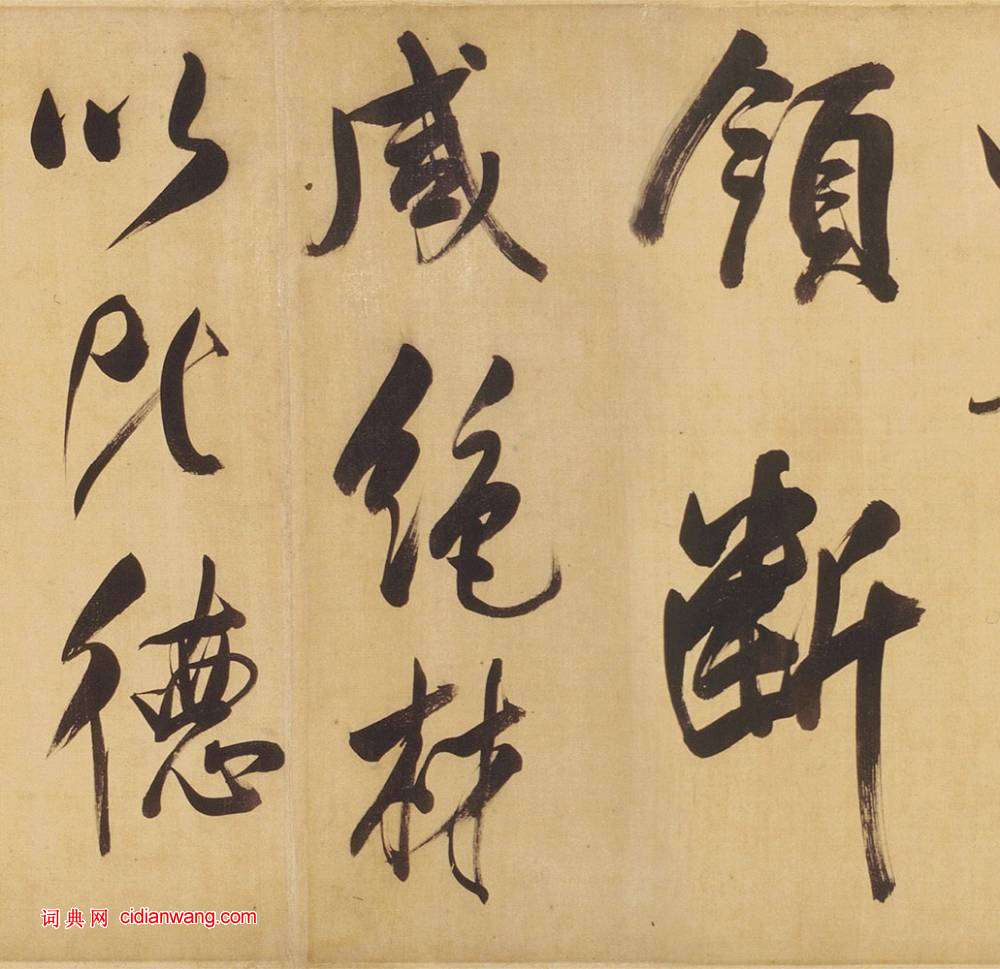 領斷
咸絕材
以比德
词典网 cidianwang.com